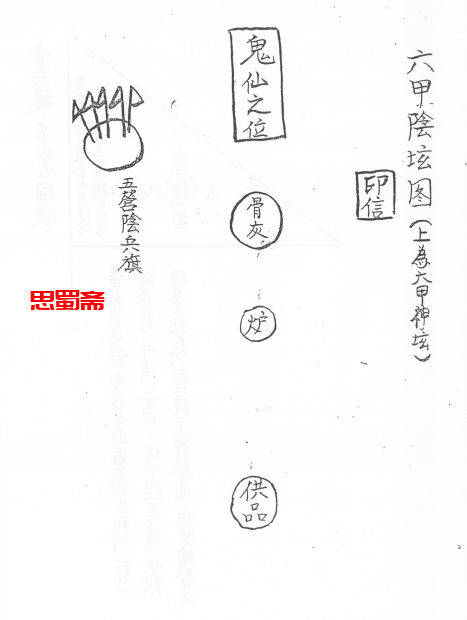 六甲陰坛图(上為六甲神坛)
印信
鬼仙之位
骨灰
炉
供品
五營陰兵旗
思蜀斋